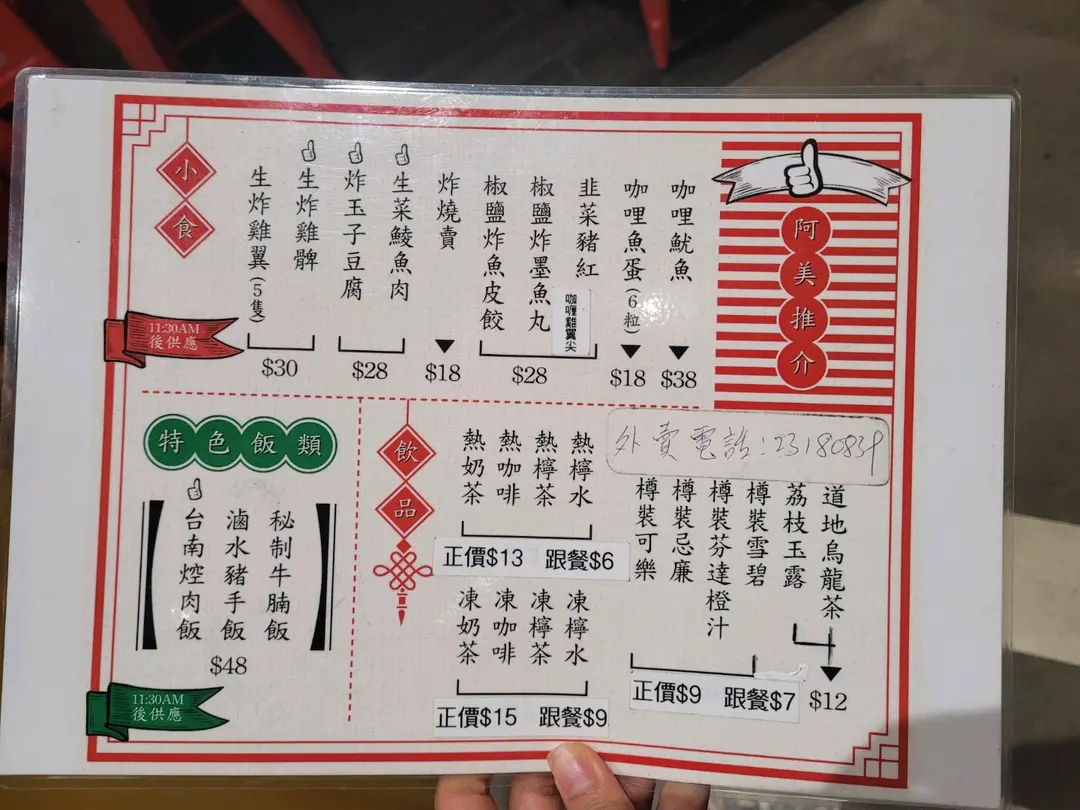 阿美推介
咖哩魷魚
$38
咖哩魚蛋(6粒)
$18
韭菜豬紅
咖喱雞翼尖
椒鹽炸墨魚丸
椒鹽炸魚皮餃
$28
炸燒賣
$18
生菜鯪魚肉
炸玉子豆腐
$28
生炸雞髀
生炸雞翼(5隻)
$30
小食
11:30AM
後供應
外賣電話:23180839
道地烏龍茶
荔枝玉露
$12
樽裝雪碧
樽裝芬達橙汁
樽裝忌廉
樽裝可樂
正價$9 跟餐$7
熱檸水
熱檸茶
熱咖啡
熱奶茶
正價$13 跟餐$6
凍檸水
凍檸茶
凍咖啡
凍奶茶
正價$15 跟餐$9
飲品
特色飯類
秘制牛腩飯
滷水豬手飯
台南焢肉飯
$48
11:30AM
後供應